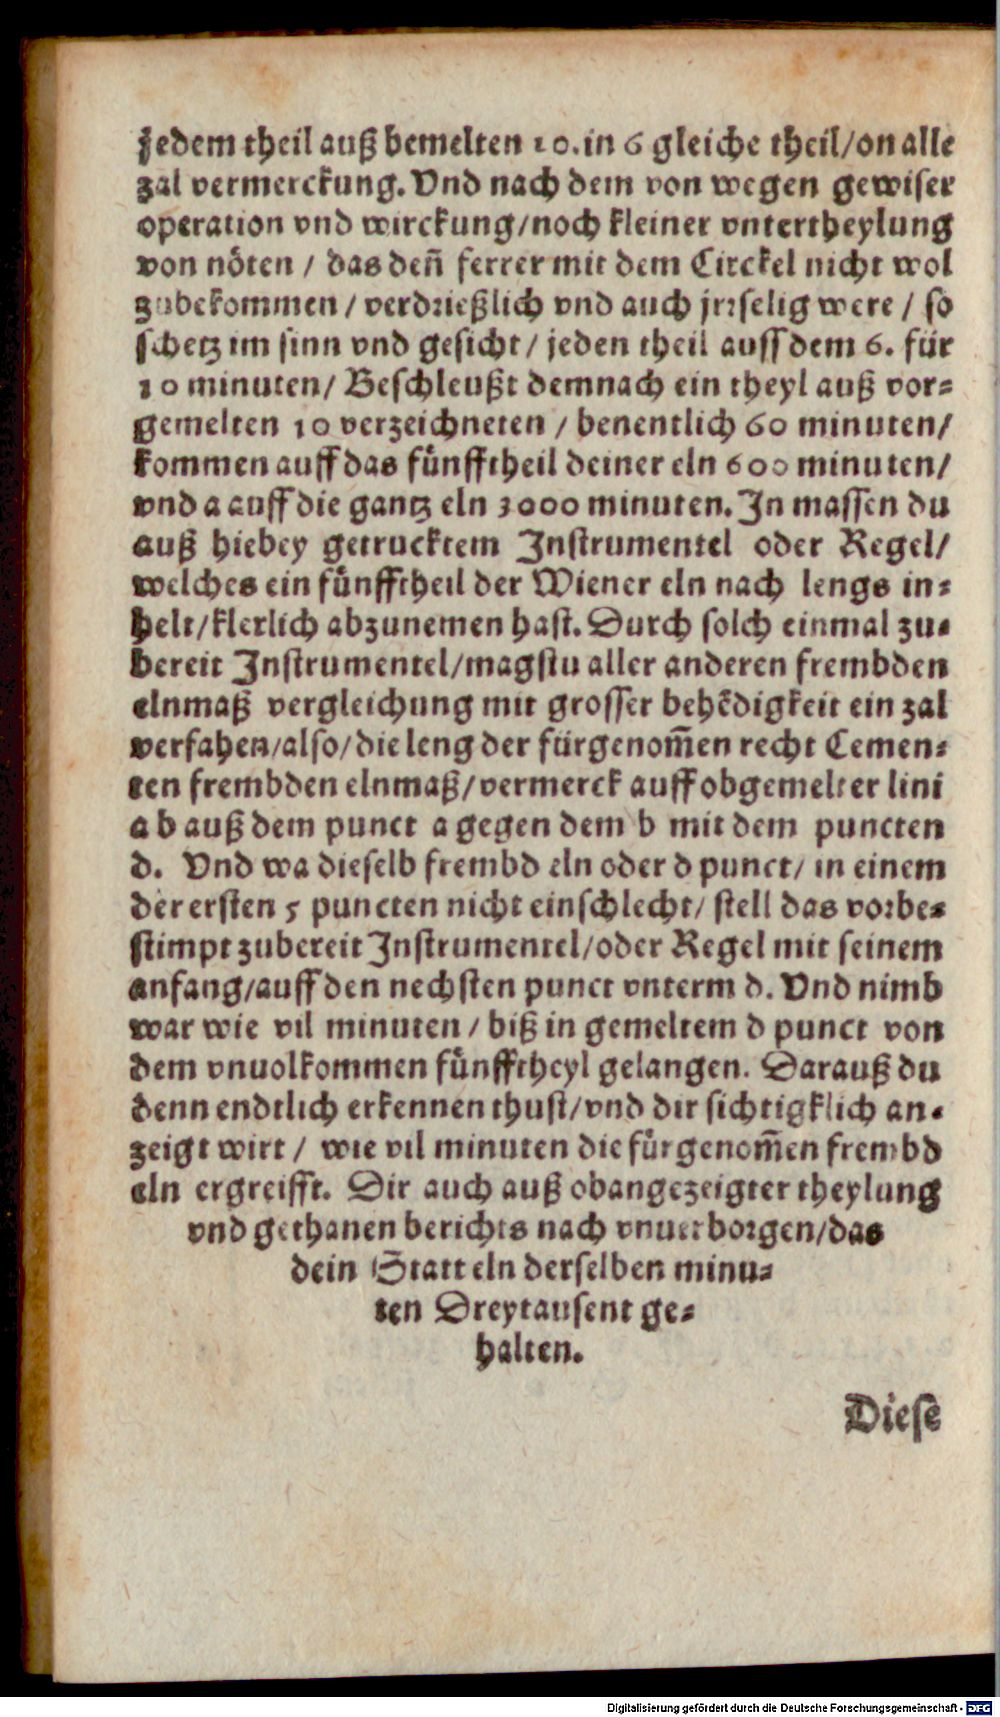 jedem theil auß bemelten 10. in 6 gleiche theil/on alle
zal vermerckung. Vnd nach dem von wegen gewiser
operation vnd wirckung/noch kleiner vntertheylung
von nöten / das deñ ferrer mit dem Circkel nicht wol
zubekommen / verdrießlich vnd auch jrrselig were / so
schetz im sinn vnd gesicht / jeden theil auss dem 6. für
10 minuten/ Beschleußt demnach ein theyl auß vor⸗
gemelten 10 verzeichneten / benentlich 60 minuten/
kommen auff das fünfftheil deiner eln 600 minuten/
vnd a auff die gantz eln 3000 minuten. In massen du
auß hiebey getrucktem Instrumentel oder Regel/
welches ein fünfftheil der Wiener eln nach lengs in⸗
helt/klerlich abzunemen hast. Durch solch einmal zu⸗
bereit Instrumentel/magstu aller anderen frembden
elnmaß vergleichung mit grosser behẽdigkeit ein zal
verfahen/also/die leng der fürgenom̃en recht Cemen⸗
ten frembden elnmaß/vermerck auff obgemelter lini
a b auß dem punct a gegen dem b mit dem puncten
d. Vnd wa dieselb frembd eln oder d punct/ in einem
der ersten 5 puncten nicht einschlecht/ stell das vorbe⸗
stimpt zubereit Instrumentel/oder Regel mit seinem
anfang/auff den nechsten punct vnterm d. Vnd nimb
war wie vil minuten / biß in gemeltem d punct von
dem vnuolkommen fünfftheyl gelangen. Darauß du
denn endtlich erkennen thust/vnd dir sichtigklich an⸗
zeigt wirt / wie vil minuten die fürgenom̃en frembd
eln ergreifft. Dir auch auß obangezeigter theylung
vnd gethanen berichts nach vnuerborgen/das
dein Statt eln derselben minu⸗
ten Dreytausent ge⸗
halten.
Diese
Digitalisierung gefördert durch die Deutsche Forschungsgemeinschaft - DFG